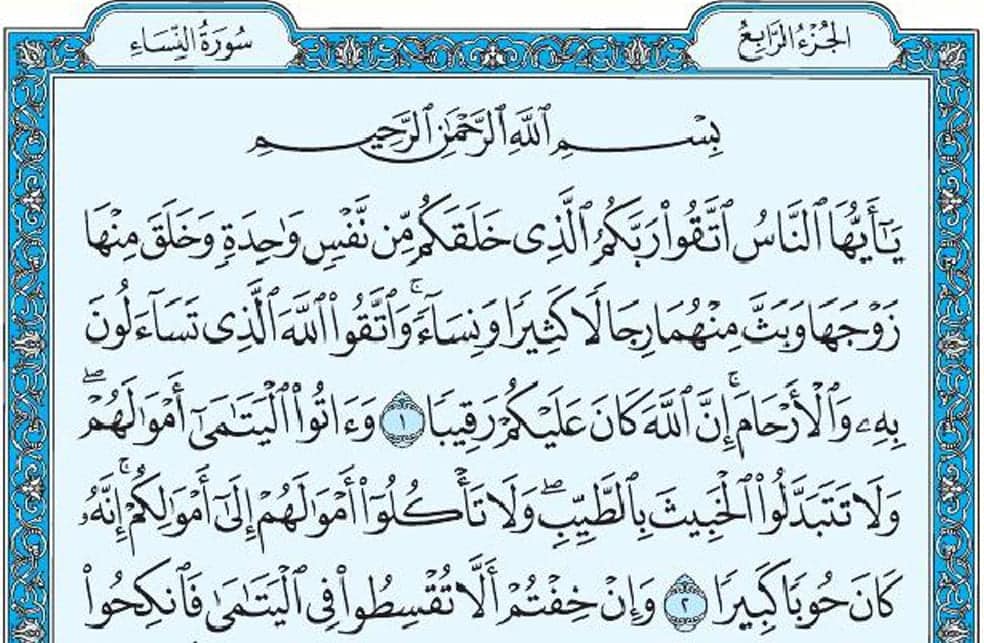 الجُزْءُ الرَّابِعُ
سُورَةُ النِّسَاءِ
بِسْمِ ٱللَّهِ ٱلرَّحْمَٰنِ ٱلرَّحِيمِ
يَٰٓأَيُّهَا ٱلنَّاسُ ٱتَّقُوا۟ رَبَّكُمُ ٱلَّذِى خَلَقَكُم مِّن نَّفْسٍ وَٰحِدَةٍ وَخَلَقَ مِنْهَا
زَوْجَهَا وَبَثَّ مِنْهُمَا رِجَالًا كَثِيرًا وَنِسَآءً ۚ وَٱتَّقُوا۟ ٱللَّهَ ٱلَّذِى تَسَآءَلُونَ
بِهِۦ وَٱلْأَرْحَامَ ۚ إِنَّ ٱللَّهَ كَانَ عَلَيْكُمْ رَقِيبًا ١ وَءَاتُوا۟ ٱلْيَتَٰمَىٰٓ أَمْوَٰلَهُمْ ۖ
وَلَا تَتَبَدَّلُوا۟ ٱلْخَبِيثَ بِٱلطَّيِّبِ ۖ وَلَا تَأْكُلُوٓا۟ أَمْوَٰلَهُمْ إِلَىٰٓ أَمْوَٰلِكُمْ ۚ إِنَّهُۥ
كَانَ حُوبًا كَبِيرًا ٢ وَإِنْ خِفْتُمْ أَلَّا تُقْسِطُوا۟ فِى ٱلْيَتَٰمَىٰ فَٱنكِحُوا۟